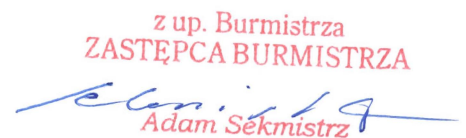 z up. Burmistrza
ZASTĘPCA BURMISTRZA
Adam Sekmistrz